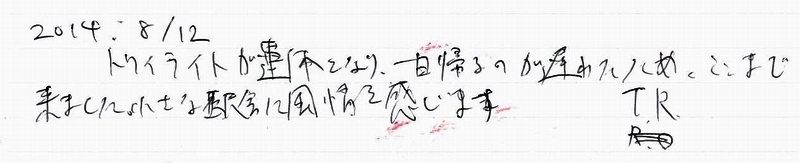 2014.8/12
トワイライトが運休となり、一日帰るのが遅れたため、ここまで
来ました。小さな駅舎に風情を感じます T.R.